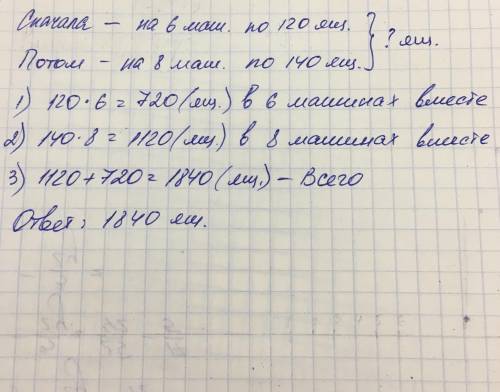 Сначала – на 6 маш. по 120 ящ.
Потом – на 8 маш. по 140 ящ.
? ящ.
1) 120 · 6 = 720 (ящ.) в 6 машинах вместе
2) 140 · 8 = 1120 (ящ.) в 8 машинах вместе
3) 1120 + 720 = 1840 (ящ.) – Всего
Ответ: 1840 ящ.